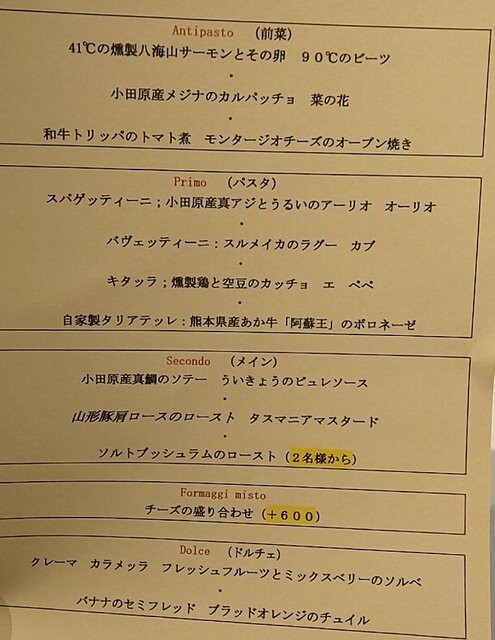 Antipasto （前菜）
41℃の燻製八海山サーモンとその卵　９０℃のビーツ
・
小田原産メジナのカルパッチョ　菜の花
・
和牛トリッパのトマト煮　モンタージオチーズのオーブン焼き
Primo （パスタ）
スパゲッティーニ；小田原産真アジとうるいのアーリオ　オーリオ
・
バヴェッティーニ：スルメイカのラグー　カブ
・
キタッラ；燻製鶏と空豆のカッチョ　エ　ペペ
・
自家製タリアテッレ：熊本県産あか牛「阿蘇王」のボロネーゼ
Secondo （メイン）
小田原産真鯛のソテー　ういきょうのピュレソース
・
山形豚肩ロースのロースト　タスマニアマスタード
・
ソルトブッシュラムのロースト（２名様から）
Formaggi misto
チーズの盛り合わせ（＋６００）
Dolce （ドルチェ）
クレーマ　カラメッラ　フレッシュフルーツとミックスベリーのソルベ
・
バナナのセミフレッド　ブラッドオレンジのチュイル